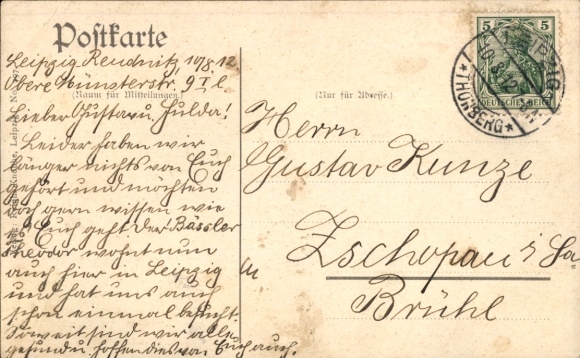 Postkarte
Leipzig Reudnitz, 10/8.12
Obere Münsterstr. 9 I l
(Raum für Mitteilungen.)
Lieber Gustav u. Hulda!
Leider haben wir
länger nichts von Euch
gehört und möchten
doch gern wissen wie
es Euch geht. Der Bässler
Theodor wohnt nun
auch hier in Leipzig
und hat uns auch
schon einmal besucht.
Soweit sind wir alle
gesund u. hoffen dies von Euch auch.
(Nur für Adresse.)
Herrn
Gustav Kunze
Zschopau i/Sa
Brühl
5 5
DEUTSCHES REICH
LEIPZIG
*THONBERG*